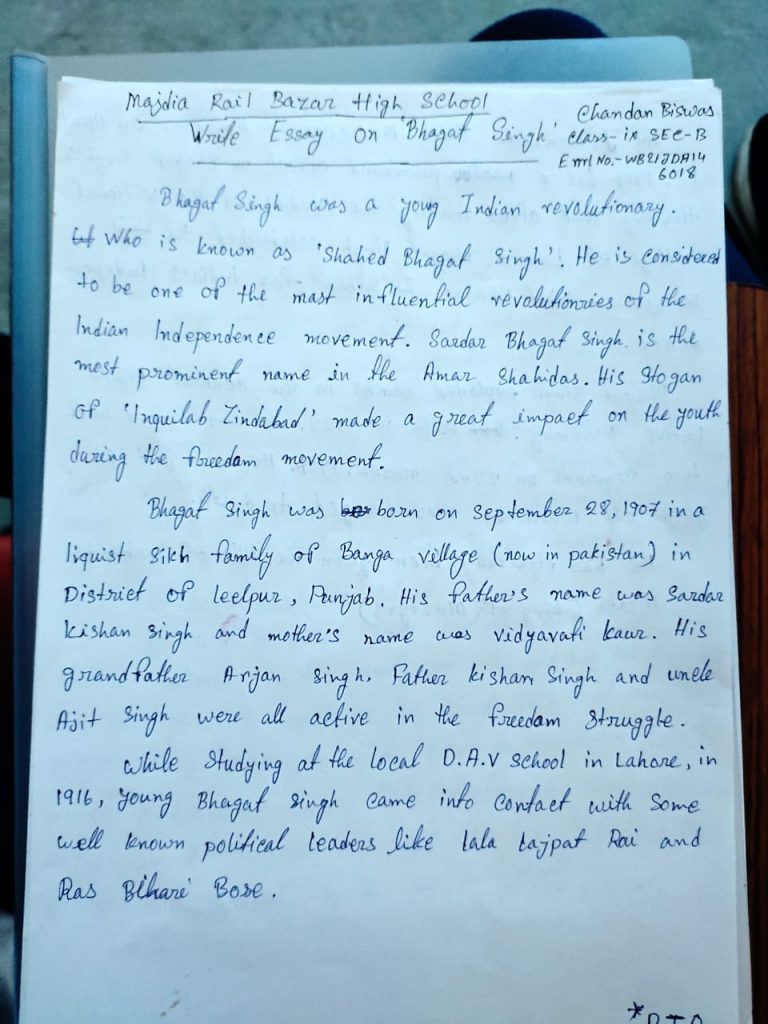 Majdia Rail Bazar High School
Chandan Biswas
Write Essay on 'Bhagat Singh'
Class-ix SEC-B
Enrl No.-WB21JDA14
6018
Bhagat Singh was a young Indian revolutionary.
Who is known as 'Shahed Bhagat Singh'. He is considered
to be one of the mast influential revalutionries of the
Indian Independence movement. Sardar Bhagat Singh is the
most prominent name in the Amar Shahidas. His Slogan
of 'Inquilab Zindabad' made a great impact on the youth
during the freedam movement.
Bhagat Singh was born on September 28, 1907 in a
liquist Sikh family of Banga village (now in pakistan) in
District of leelpur, Punjab. His father's name was Sardar
kishan singh and mother's name was vidyavati kaur. His
grandfather Arjan singh, Father kishan Singh and uncle
Ajit Singh were all active in the freedam struggle.
while studying at the local D.A.V school in Lahore, in
1916, young Bhagat singh came into contact with some
well known political leaders like lala lajpat Rai and
Ras Bihari Bose.
*P.T.O